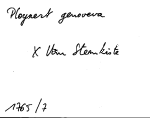 Pleynert genoveva
X Vom Steinkiste
1765/7